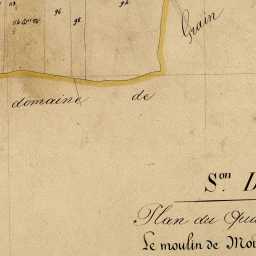 96
96
96
Grain
domaine de
Son
Plan du
Le moulin de